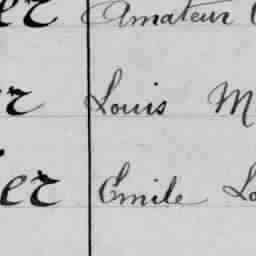 er Amateur
er Louis M
er Emile Lo